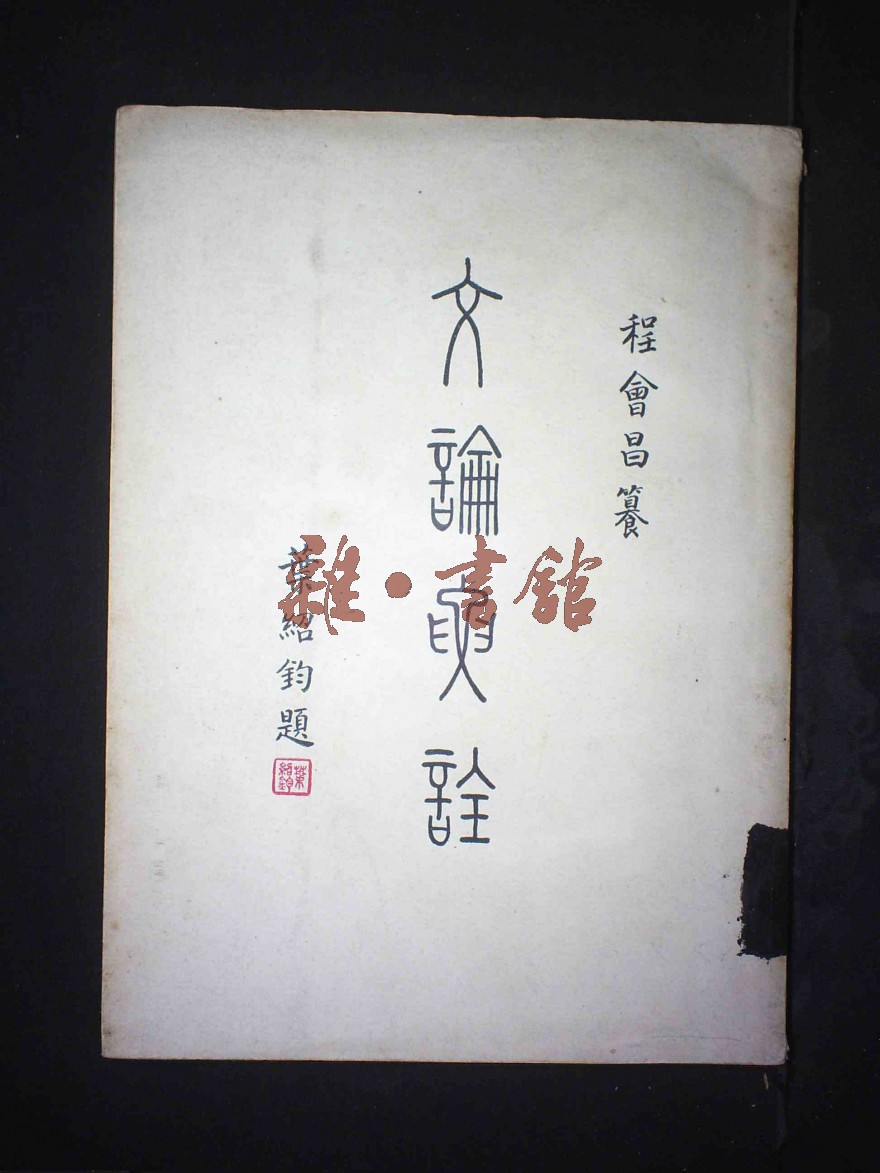 程會昌纂
文論要詮
葉紹鈞題
葉紹鈞
雜·書館